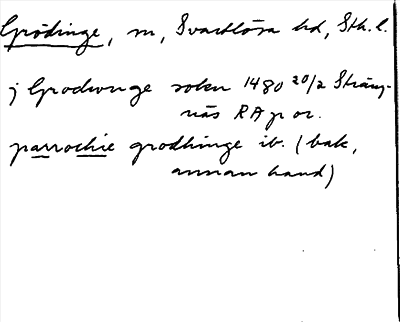 Grödinge, sn, Svartlösa hd, Sth. l.
j Grodwnge sokn 1480 20/2 Sträng-
näs RAp or.
parrochie grodhinge ib. (bak,
annan hand)